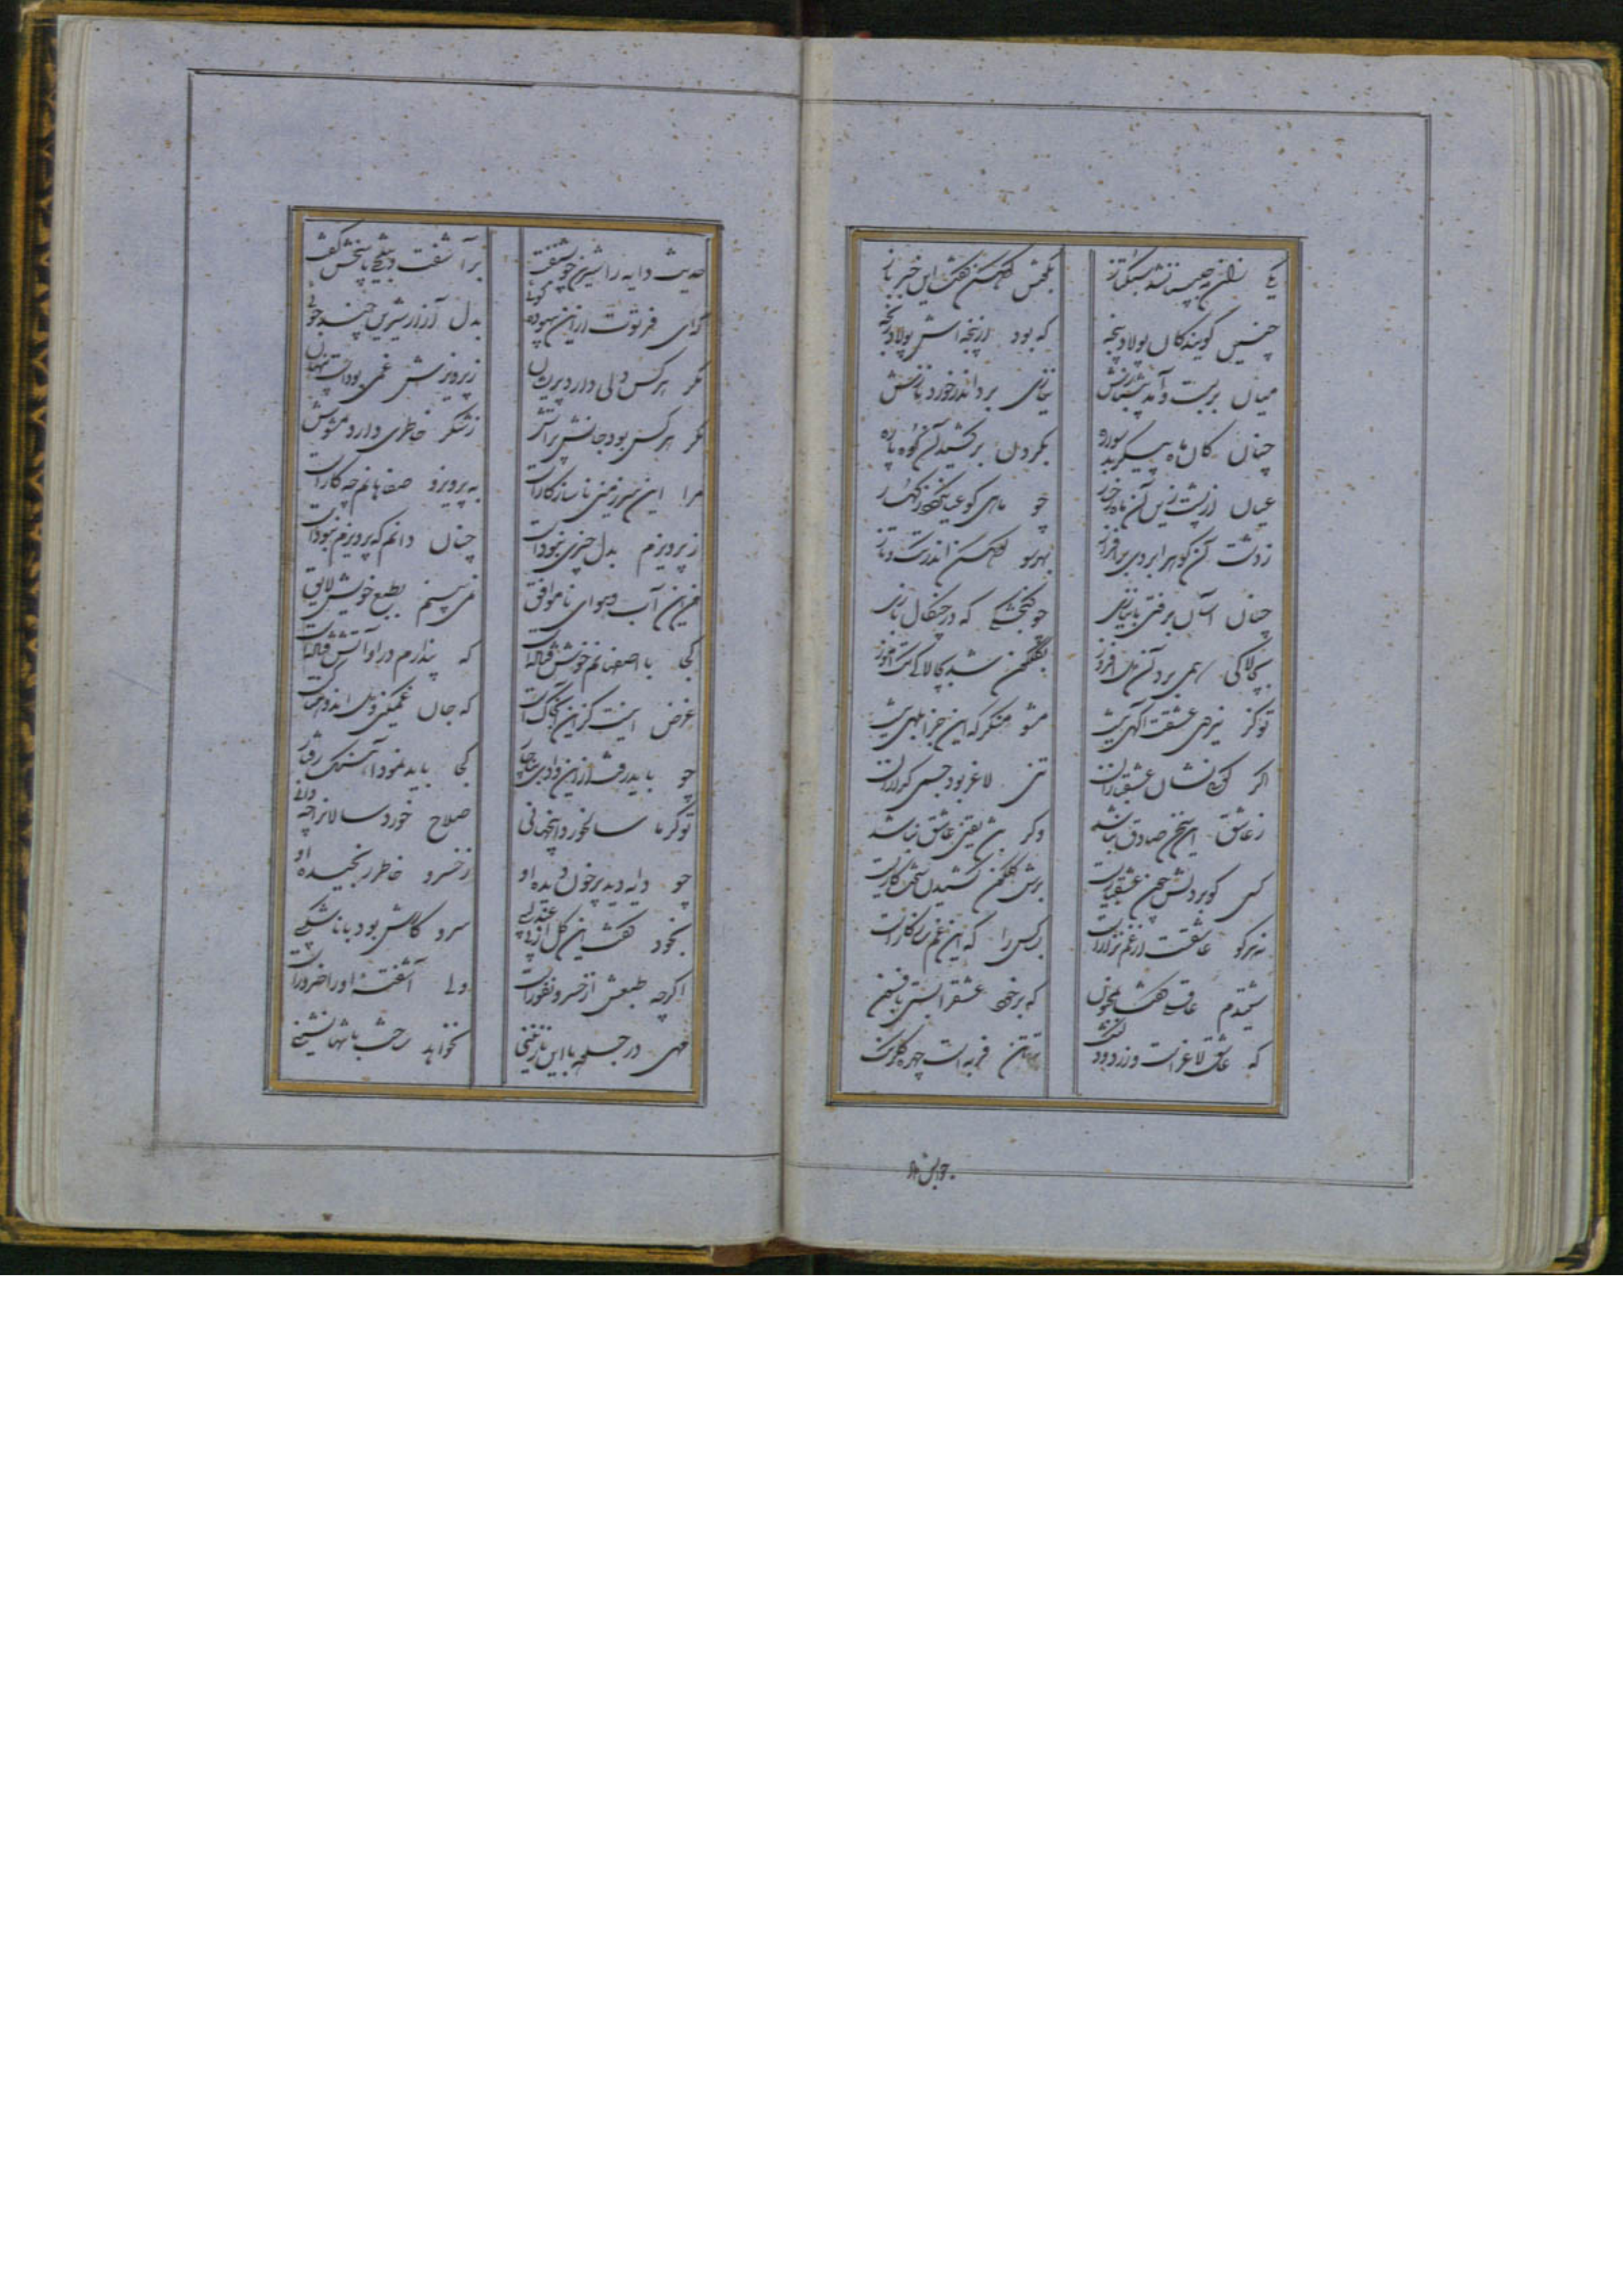 یکی زان چو بیستانشد سبکتاز بگفتش کوهکن گفت این خبر باز
چنین گویند کان پولاد پنجه که بود از پنجه‌اش پولاد رنجه
میان بربست و آمد پیش رخش بجای برد اندر خورد نازش
چنان کان ماه پیکر بد سواره بگردن برکشید آن کوه پاره
عیان از پشت زین آن ماه رخسار چو ماهی کو عیان گردد ز کهسار
ز دشت آن گوهر ابروی برافراز بهر سو کوهکن اندر تک و تاز
چنان آسان برفتی با نیازی چو گنجشکی که در چنگال بازی
بچالاکی همی برد آن دل افروز بگلگون شد بچالاکی تک آموز
تو کز نیروی عشقت آگهی نیست مشو منکر که این جز ابلهی نیست
اگر گویی نشان عشقبازان تنی لاغر بود جسمی گدازان
ز عاشق این سخن صادق نباشد وگر باشد یقین عاشق نباشد
کسی کو بر دلش چون عشق یارست برش گلگون کشیدن سخت کارست
نه هر کو عاشقست از غم نزارست بسا کس را که این غم سازگارست
شنیدم عاقلی گفتا بمجنون که برخود عشق را بستی بافسون
که عاشق لاغر است و زرد و دلتنگ ترا تن فربه است چهره گلرنگ
جوابش داد
حدیث دایه را شیرین چو بشنفت برآشفت و به تلخی پاسخش گفت
کای فرتوت ازین بیهوده گوئی بدل آزار شیرین چند جوئی
مگر هر کس دلی دارد پریشان ز پرویزش غمی بودست پنهان
مگر هر کس بود جانش پر آتش ز شکر خاطری دارد مشوش
مرا این سرزمین ناسازگارست به پرویز و صفاهانم چه کارست
ز پرویزم بدل چیزی نبودست چنان دانم که پرویزم نبودست
من و این آب و هوای ناموافق نمی‌بینم بطبع خویش لایق
کجا با اصفهانم خوش فتادست که پندارم در او آتش فتادست
غرض اینست کز این خاک دلگیر که جان غمگین و دل اندوهناکست
چو باید رفت ازین وادی بناچار کجا باید نمود آهنگ رفتار
تو گر ما سالخورد و این جهانی صلاح خورد سالان را چه دانی
چو دایه دید پرخون دیده او ز خسرو خاطر رنجیده او
بخود گفت این گل از بی عندلیبی سرو کارش بود با ناشکیبی
اگرچه طبعش از خسرو نفورست ولی آشفته او را ضرورست
مهی در جلوه با این نازنینی نخواهد ساخت با تنها نشینی